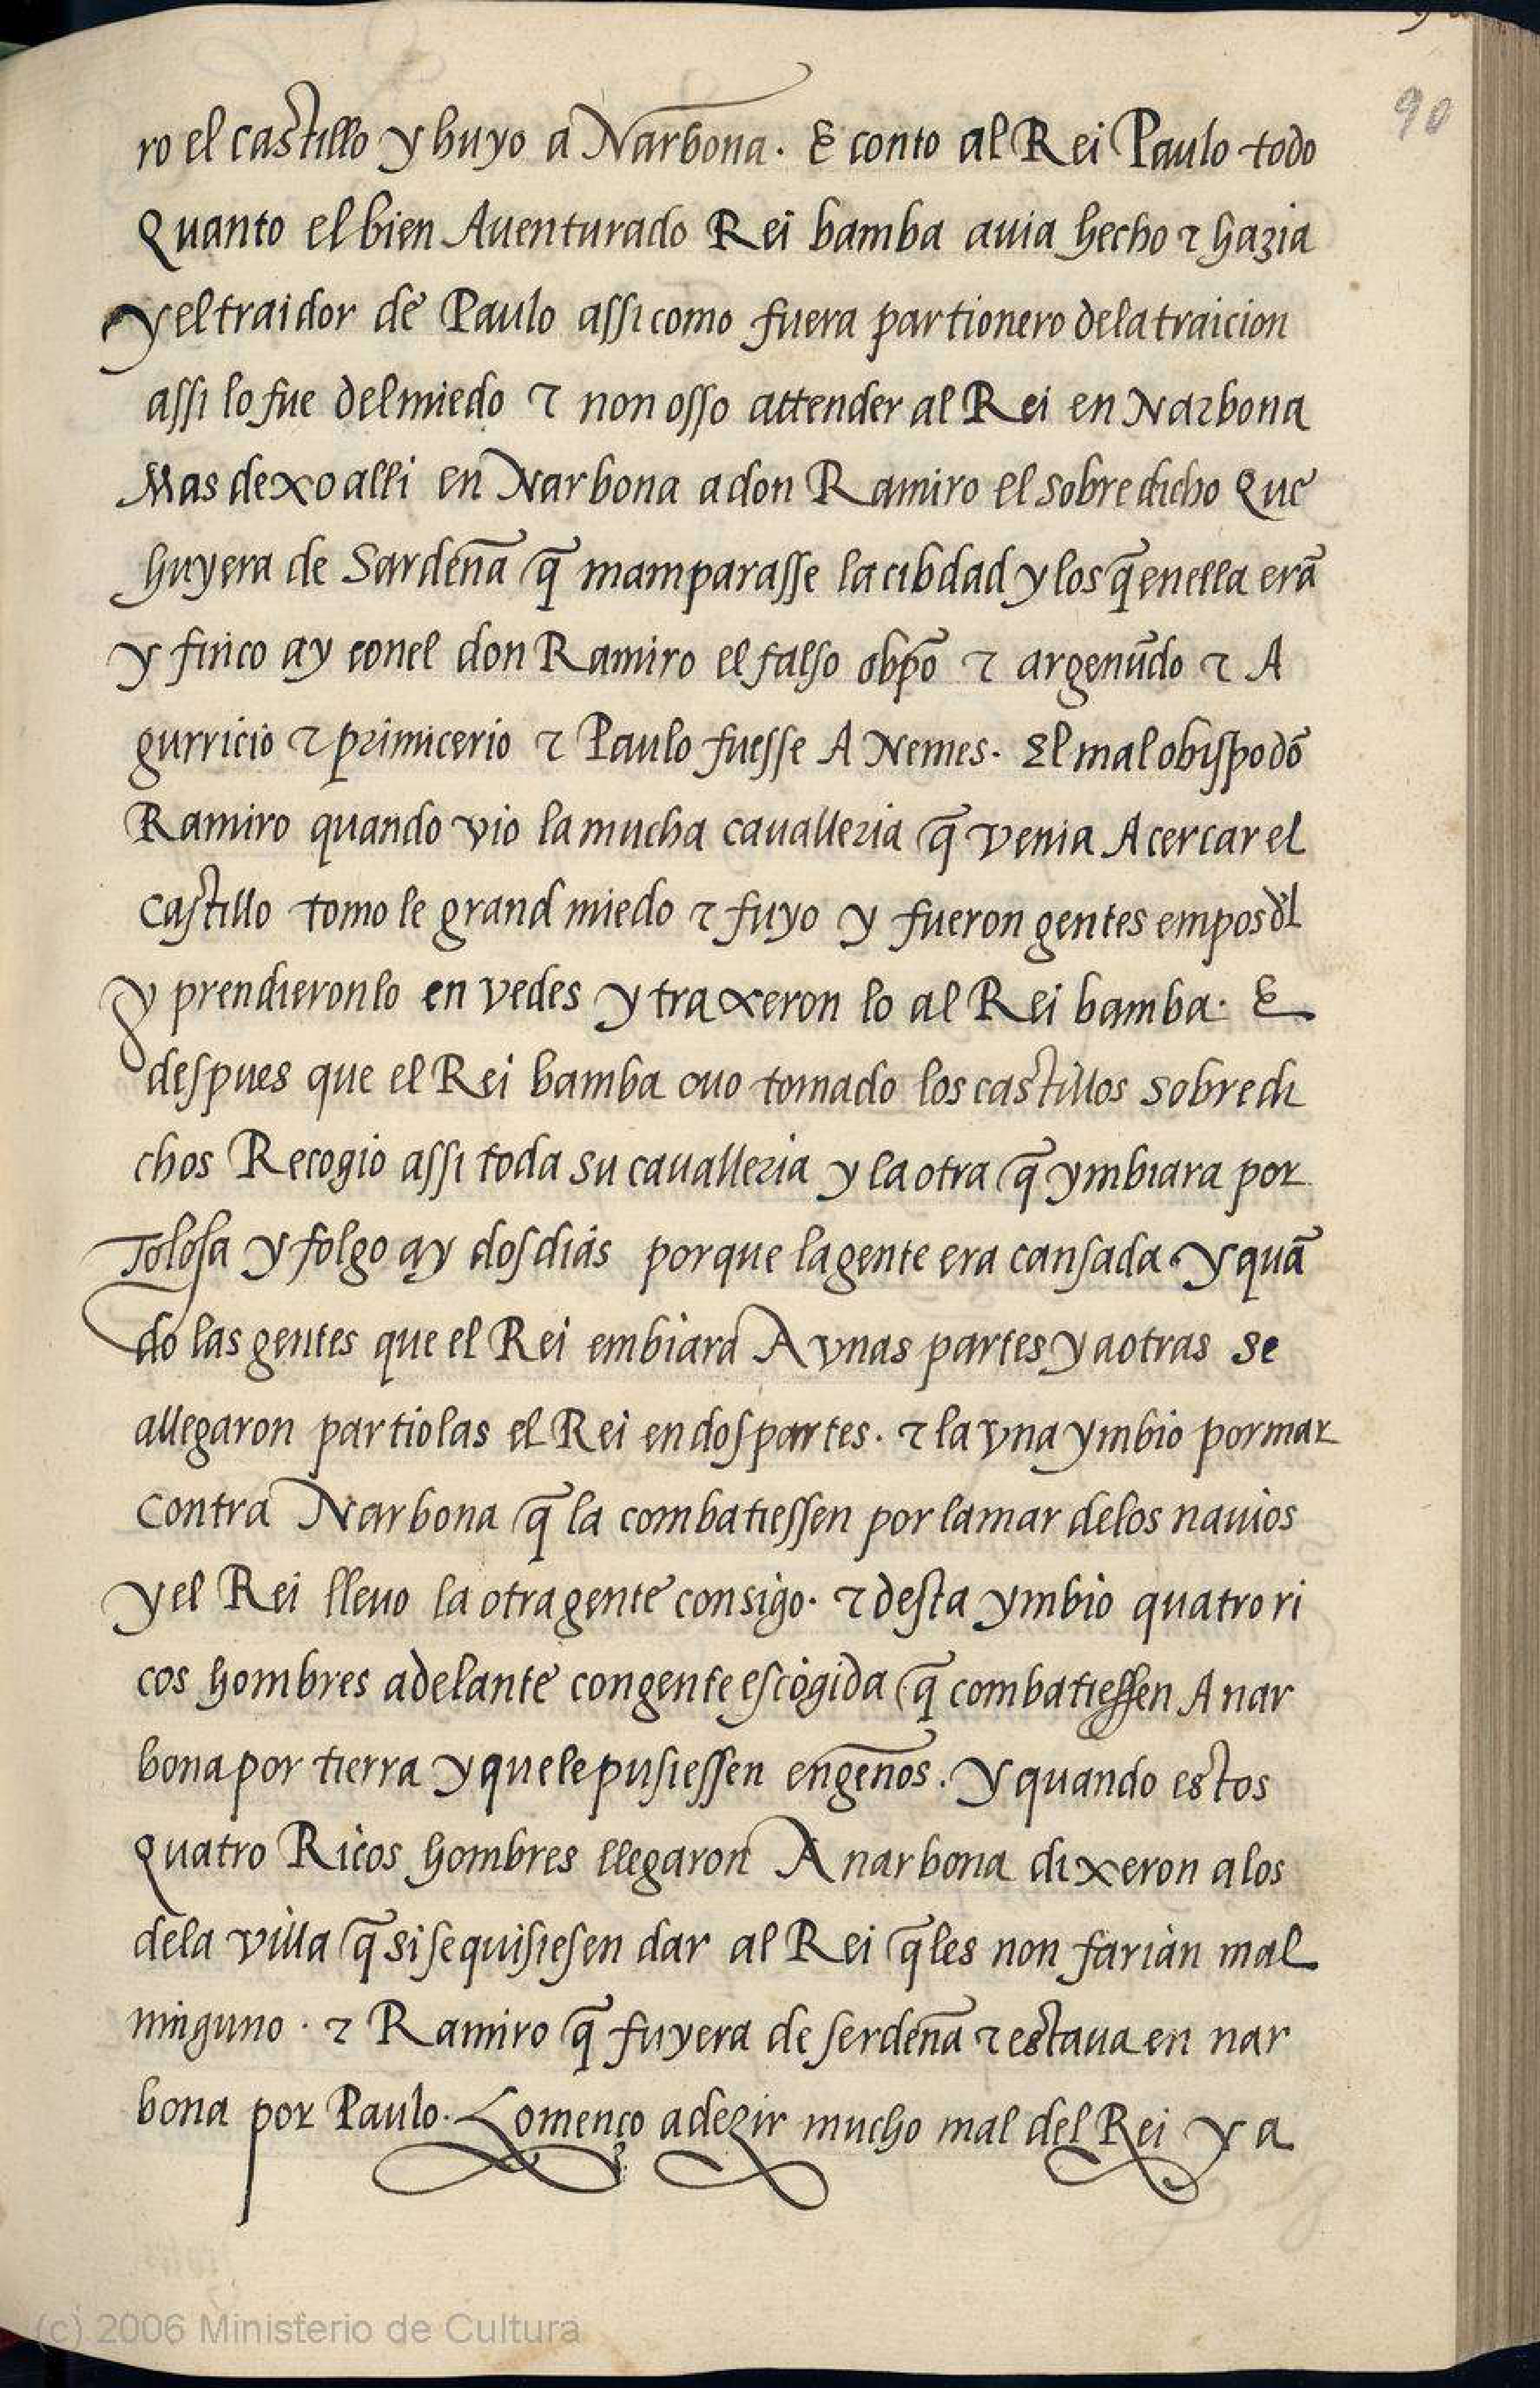 90
ro el castillo y huyo a Narbona. E conto al Rei Paulo todo
Quanto el bien Auenturado Rei bamba auia hecho τ hazia
y el traidor de Paulo assi como fuera partionero dela traicion
assi lo fue del miedo τ non osso attender al Rei en Narbona
Mas dexo alli en Narbona a don Ramiro el sobre dicho Que
huyera de Sardena q̄ mamparasse la cibdad y los q̄ en ella erā
y finco ay conel don Ramiro el falso obpō τ argenūdo τ A
gurricio τ primicerio τ Paulo fuesse A Nemes. El mal obispo dō
Ramiro quando vio la mucha caualleria q̄ venia A cercar el
castillo tomo le grand miedo τ fuyo y fueron gentes empos dl
y prendieronlo en vedes y traxeron lo al Rei bamba. E
despues que el Rei bamba ouo tomado los castillos sobredi
chos Recogio assi toda su caualleria y la otra q̄ ymbiara por
Tolosa y folgo ay dos dias porque la gente era cansada. y quā
do las gentes que el Rei embiara A vnas partes y a otras se
allegaron partiolas el Rei en dos partes. τ la vna ymbio por mar
contra Narbona q̄ la combatiessen por la mar delos nauios
y el Rei lleuo la otra gente consigo. τ desta ymbio quatro ri
cos hombres adelante con gente escogida q̄ combatiessen A nar
bona por tierra y que le pusiessen engenos. y quando estos
quatro Ricos hombres llegaron A narbona dixeron a los
dela villa q̄ si se quisiesen dar al Rei q̄ les non farian mal
ninguno. τ Ramiro q̄ fuyera de serdena τ estaua en nar
bona por Paulo. Començo a dezir mucho mal del Rei y a
(c) 2006 Ministerio de Cultura